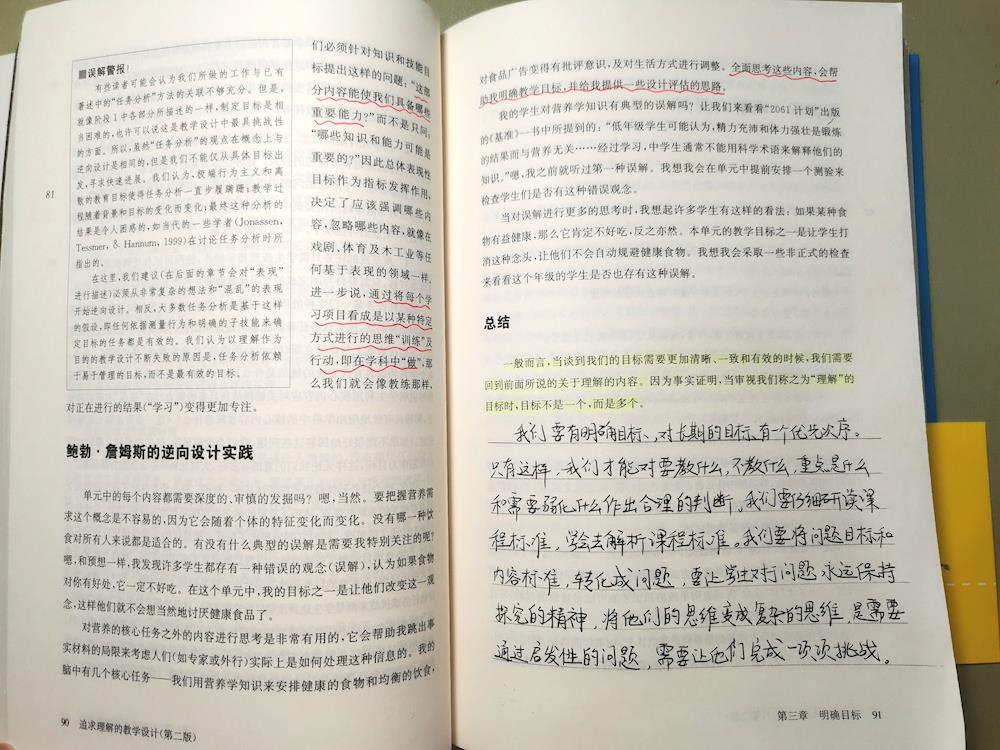 ■误解警报!
有些读者可能会认为我们所做的工作与已有
著述中的“任务分析”方法的关联不够充分。但是,
就像阶段1中各部分所描述的一样,制定目标是相
当困难的,也许可以说这是教学设计中最具挑战性
的方面。所以,虽然“任务分析”的观点在概念上与
逆向设计是相同的,但是我们不能仅从具体目标出
发,寻求快速进展。我们认为,极端行为主义和离
散的教育目标使得任务分析一直步履蹒跚;教学过
程随着背景和目标的变化而变化;最终这种分析的
结果是令人困惑的,如当代的一些学者(Jonassen,
Tessmer, & Hannum, 1999)在讨论任务分析时所
指出的。
在这里,我们建议(在后面的章节会对“表现”
进行描述)必须从非常复杂的想法和“混乱”的表现
开始逆向设计。相反,大多数任务分析是基于这样
的假设,即任何依据测量行为和明确的子技能来确
定目标的任务都是有效的。我们认为以理解作为
目的的教学设计不断失败的原因是,任务分析依赖
于易于管理的目标,而不是最有效的目标。
81
们必须针对知识和技能目
标提出这样的问题:“这部
分内容能使我们具备哪些
重要能力?”而不是只问:
“哪些知识和能力可能是
重要的?”因此总体表现性
目标作为指标发挥作用,
决定了应该强调哪些内
容,忽略哪些内容,就像在
戏剧、体育及木工业等任
何基于表现的领域一样。
进一步说,通过将每个学
习项目看成是以某种特定
方式进行的思维“训练”及
行动,即在学科中“做”,那
么我们就会像教练那样,
对正在进行的结果(“学习”)变得更加专注。
鲍勃·詹姆斯的逆向设计实践
单元中的每个内容都需要深度的、审慎的发掘吗?嗯,当然。要把握营养需
求这个概念是不容易的,因为它会随着个体的特征变化而变化。没有哪一种饮
食对所有人来说都是适合的。有没有什么典型的误解是需要我特别关注的呢?
嗯,和预想一样,我发现许多学生都存有一种错误的观念(误解),认为如果食物
对你有好处,它一定不好吃。在这个单元中,我的目标之一是让他们改变这一观
念,这样他们就不会想当然地讨厌健康食品了。
对营养的核心任务之外的内容进行思考是非常有用的,它会帮助我跳出事
实材料的局限来考虑人们(如专家或外行)实际上是如何处理这种信息的。我的
脑中有几个核心任务——我们用营养学知识来安排健康的食物和均衡的饮食,
90 追求理解的教学设计(第二版)
对食品广告变得有批评意识,及对生活方式进行调整。全面思考这些内容,会帮
助我明确教学目标,并给我提供一些设计评估的思路。
我的学生对营养学知识有典型的误解吗?让我们来看看“2061计划”出版
的《基准》一书中所提到的:“低年级学生可能认为,精力充沛和体力强壮是锻炼
的结果而与营养无关……经过学习,中学生通常不能用科学术语来解释他们的
知识。”嗯,我之前就听过第一种误解。我想我会在单元中提前安排一个测验来
检查学生们是否有这种错误观念。
当对误解进行更多的思考时,我想起许多学生有这样的看法:如果某种食
物有益健康,那么它肯定不好吃,反之亦然。本单元的教学目标之一是让学生打
消这种念头,让他们不会自动规避健康食物。我想我会采取一些非正式的检查
来看看这个年级的学生是否也存有这种误解。
总结
一般而言,当谈到我们的目标需要更加清晰、一致和有效的时候,我们需要
回到前面所说的关于理解的内容。因为事实证明,当审视我们称之为“理解”的
目标时,目标不是一个,而是多个。
我们要有明确目标、对长期的目标有个优先次序。
只有这样,我们才能对要教什么,不教什么,重点是什么
和需要弱化什么作出合理的判断。我们要仔细研读课
程标准,学会去解析课程标准。我们要将问题目标和
内容标准,转化成问题,要让学生对问题永远保持
探究的精神,将他们的思维变成复杂的思维,是需要
通过启发性的问题,需要让他们完成一项项挑战。
第三章 明确目标 91